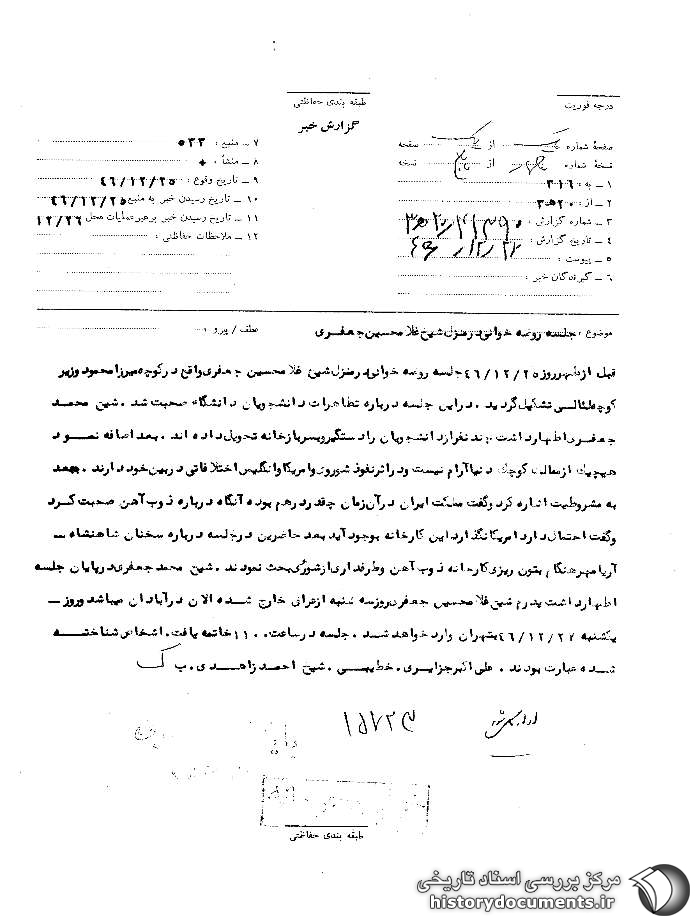 درجه فوریت
طبقه بندی حفاظتی
گزارش خبر
صفحهٔ شماره یک از یک صفحه
نسخهٔ شماره چهار از پنج نسخه
۱ ـ به : ۳۱۶
۲ ـ از : ۲۰ﻫ۳
۳ ـ شماره گزارش :
۴ ـ تاریخ گزارش : ۴۶/۱۲/۲۶
۵ ـ پیوست :
۶ ـ گیرندگان خبر :
۷ ـ منبع : ۵۳۳
۸ ـ منشأ :
۹ ـ تاریخ وقوع : ۴۶/۱۲/۲۵
۱۰ ـ تاریخ رسیدن خبر به منبع ۴۶/۱۲/۲۵
۱۱ ـ تاریخ رسیدن خبر برهبر عملیات محل ۱۲/۲۶
۱۲ ـ ملاحظات حفاظتی :
موضوع : جلسه روضه خوانی در منزل شیخ غلامحسین جعفری
عطف / پیرو :
قبل از ظهر روز ۴۶/۱۲/۲۵ جلسه روضه خوانی در منزل شیخ غلامحسین جعفری واقع در کوچه میرزا محمود وزیر
کوچه تشکیل گردید . در این جلسه درباره تظاهرات دانشجویان دانشگاه صحبت شد . شیخ محمد
جعفری اظهار داشت چند نفر از دانشجویان را دستگیر و بسربازخانه تحویل داده اند . بعد اضافه نمود
هیچیک از ممالک کوچک دنیا آرام نیست و در اثر نفوذ شوروی و امریکا و انگلیس اختلافاتی در بین خود دارند . بعد
به مشروطیت اشاره کرد و گفت مملکت ایران در آن زمان چقدر درهم بوده آنگاه درباره ذوب آهن صحبت کرد
و گفت احتمال دارد امریکا نگذارد این کارخانه بوجود آید بعد حاضرین در جلسه درباره سخنان شاهنشاه ـ
آریامهر هنگام بتون ریزی کارخانه ذوب آهن و طرفداری از شوروی بحث نمودند . شیخ محمد جعفری در پایان جلسه
اظهار داشت پدرم شیخ غلامحسین جعفری روز سه شنبه از عراق خارج شده الان در آبادان میباشد و روز ـ
یکشنبه ۴۶/۱۲/۲۷ بتهران وارد خواهد شد . جلسه در ساعت ۱۱۰۰ خاتمه یافت . اشخاص شناخته
شده عبارت بودند . علی اکبر جزایری . خطیبی . شیخ احمد زاهدی . ب ک
۱۵۷۲۳
طبقه بندی حفاظتی
مرکز بررسی اسناد تاریخی
historydocuments.ir